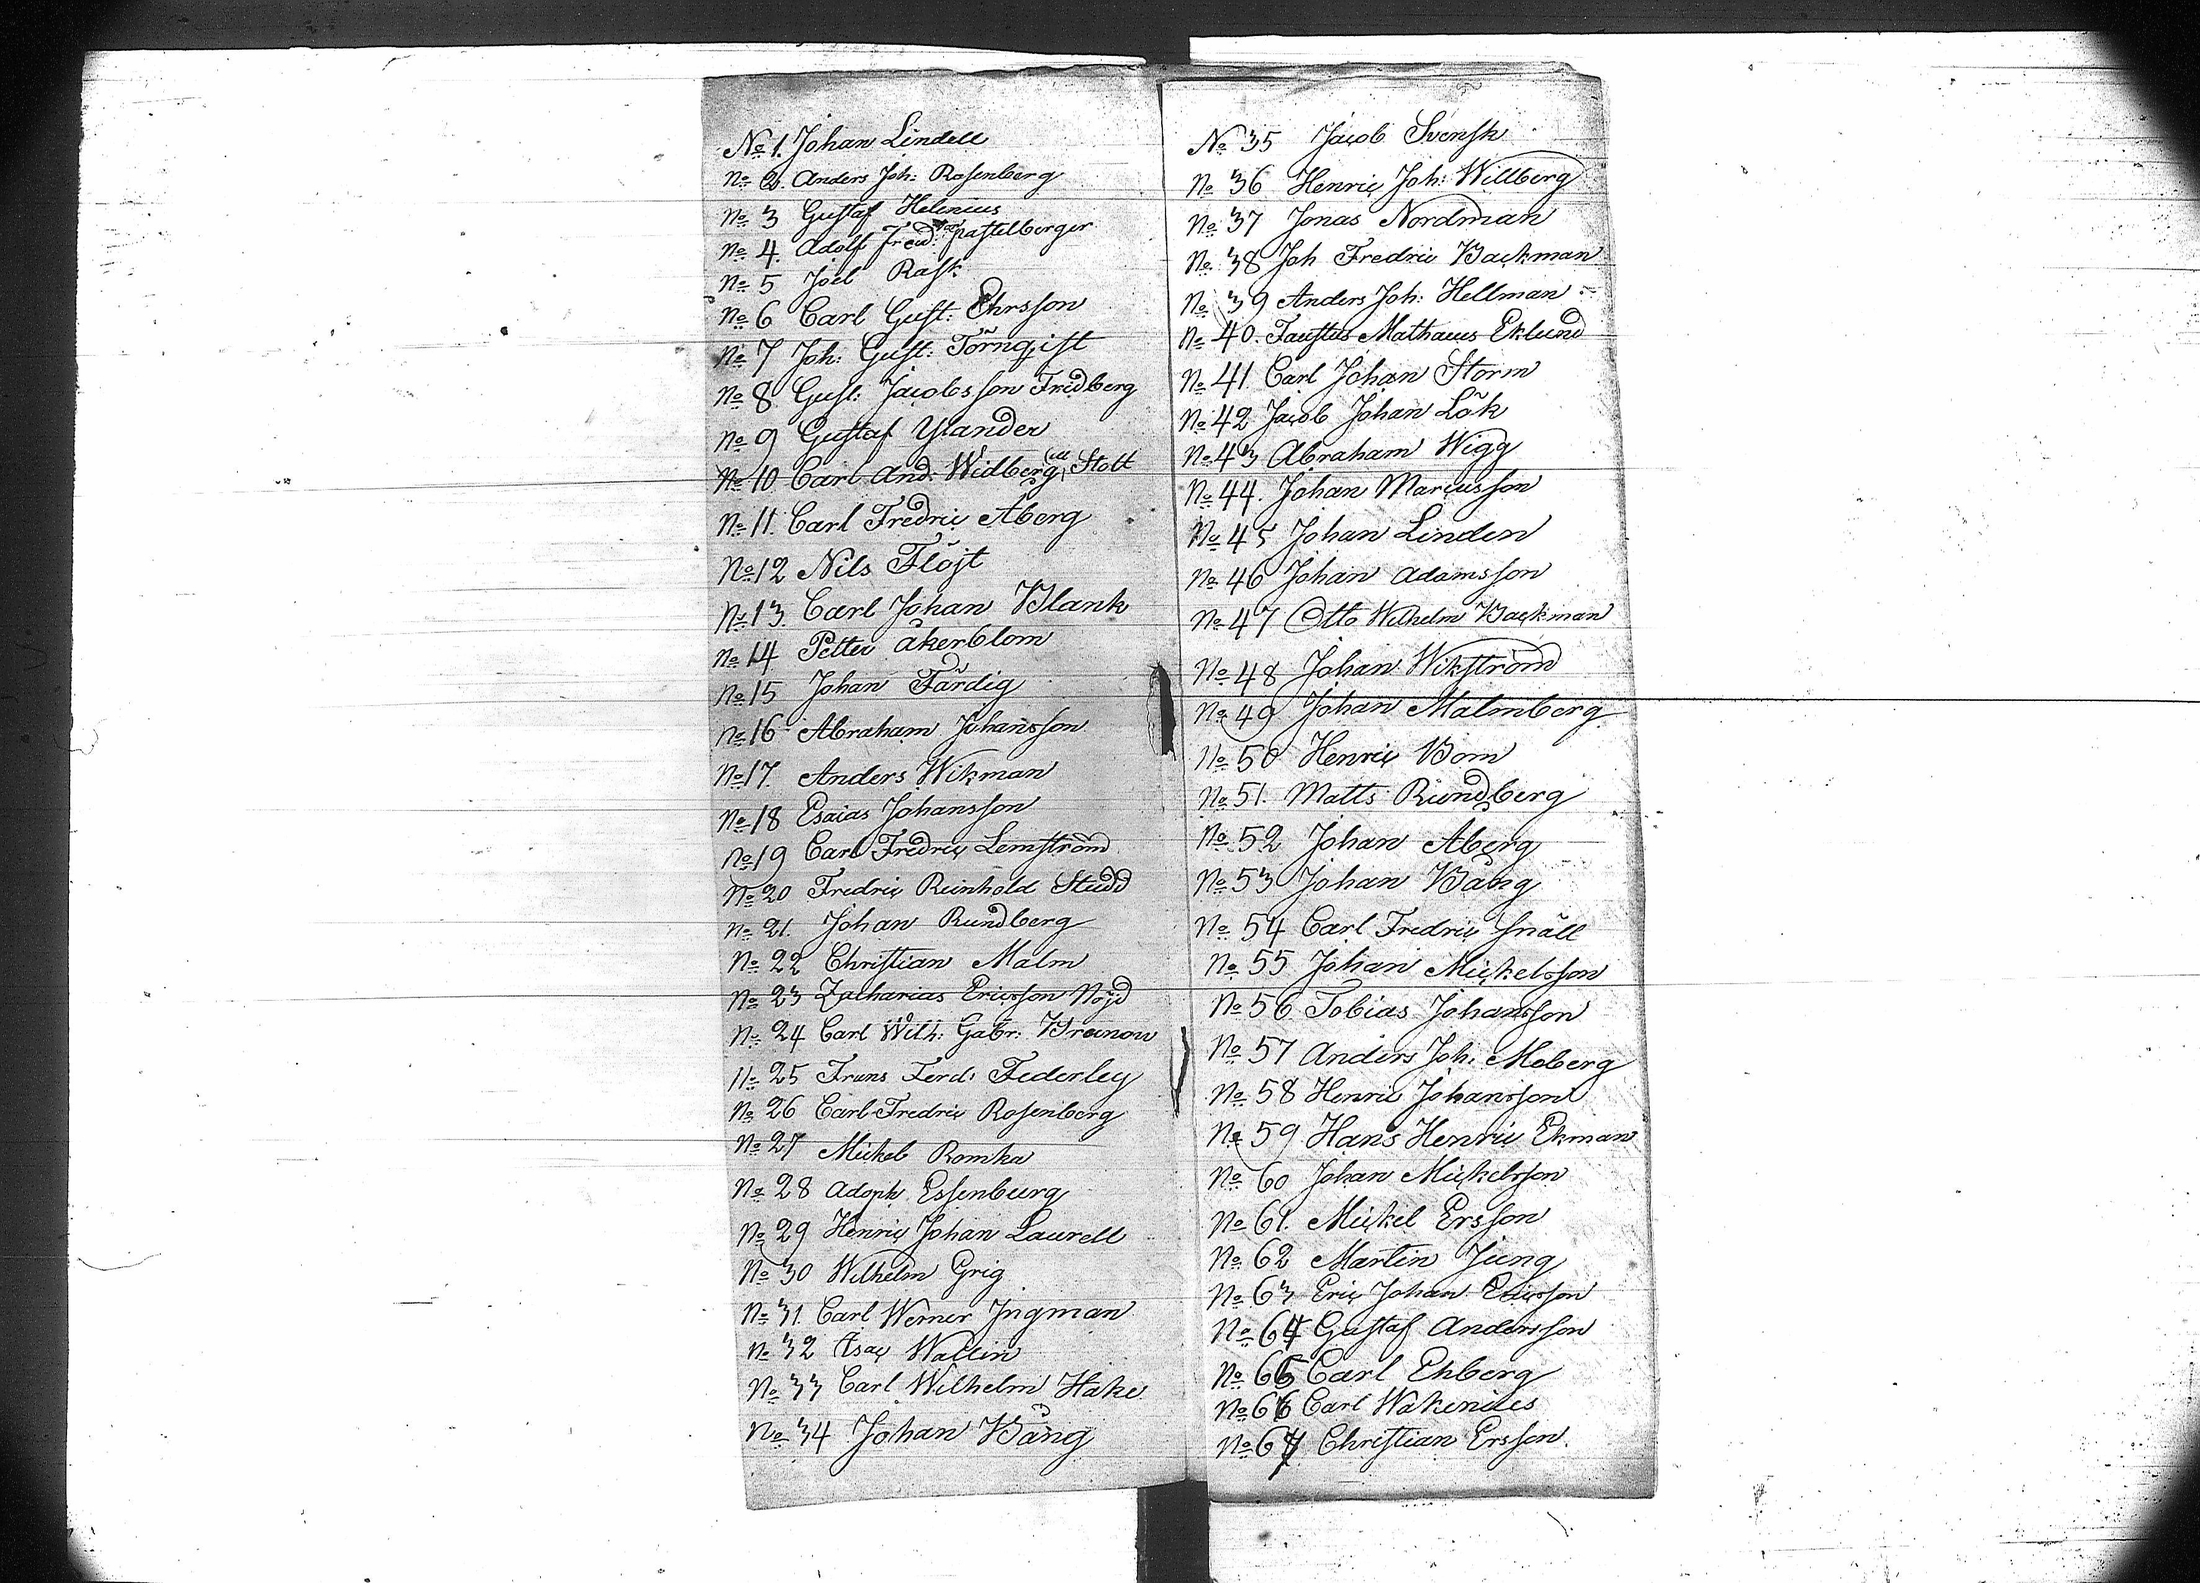 No 1. Johan Lindell
No 2. Anders Joh: Rosenberg
No 3 Gustaf Helenius
No 4. Adolf Fred: von Pastelberger
No 5 Joel Rask
No 6 Carl Gust: Ehrsson
No 7 Joh: Gust: Törnqist
No 8 Gust: Jacobsson Fridberg
No 9 Gustaf Ylander
No 10 Carl And: Widberg Stolt
No 11. Carl Fredric Åberg
No 12 Nils Flöjt
No 13. Carl Johan Blank
No 14 Petter Åkerblom
No 15 Johan Färdig
No 16 Abraham Johansson
No 17. Anders Wikman
No 18 Esaias Johansson
No 19 Carl Fredric Lemström
No 20 Fredric Reinhold Studd
No 21. Johan Rundberg
No 22 Christian Malm
No 23 Zacharias Ericsson Nöjd
No 24 Carl Wilh: Gabr:
No 25 Frans Ferd: Federley
No 26 Carl Fredric Rosenberg
No 27 Mickel Romka
No 28 Adoph Essenburg
No 29 Henric Johan Laurell
No 30 Wilhelm Grig
No 31. Carl Werner Ingman
No 32 Isac Wallin
No 33 Carl Wilhelm Hake
No 34 Johan Bång
No 35 Jacob Svensk
No 36 Henric Joh: Willberg
No 37 Jonas Nordman
No 38 Joh Fredric Backman
No 39 Anders Joh: Hellman
No 40. Faustus Mathaeus Eklund
No 41. Carl Johan Storm
No 42 Jacob Johan Lök
No 43 Abraham Wigg
No 44. Johan Marcusson
No 45 Johan Linden
No 46 Johan Adamsson
No 47 Otto Wilhelm Backman
No 48 Johan Wikström
No 49 Johan Malmberg
No 50 Henric Bom
No 51. Matts Rundberg
No 52 Johan Åberg
No 53 Johan Bång
No 54 Carl Fredric Snäll
No 55 Johan Mickelsson
No 56 Tobias Johansson
No 57 Anders Joh: Moberg
No 58 Henric Johansson
No 59 Hans Henric Ekman
No 60 Johan Mickelsson
No 61. Mickel Ersson
No 62 Martin Jung
No 63 Eric Johan Ericsson
No 64 Gustaf Andersson
No 65 Carl Ehberg
No 66 Carl Wakenius
No 67 Christian Ersson.